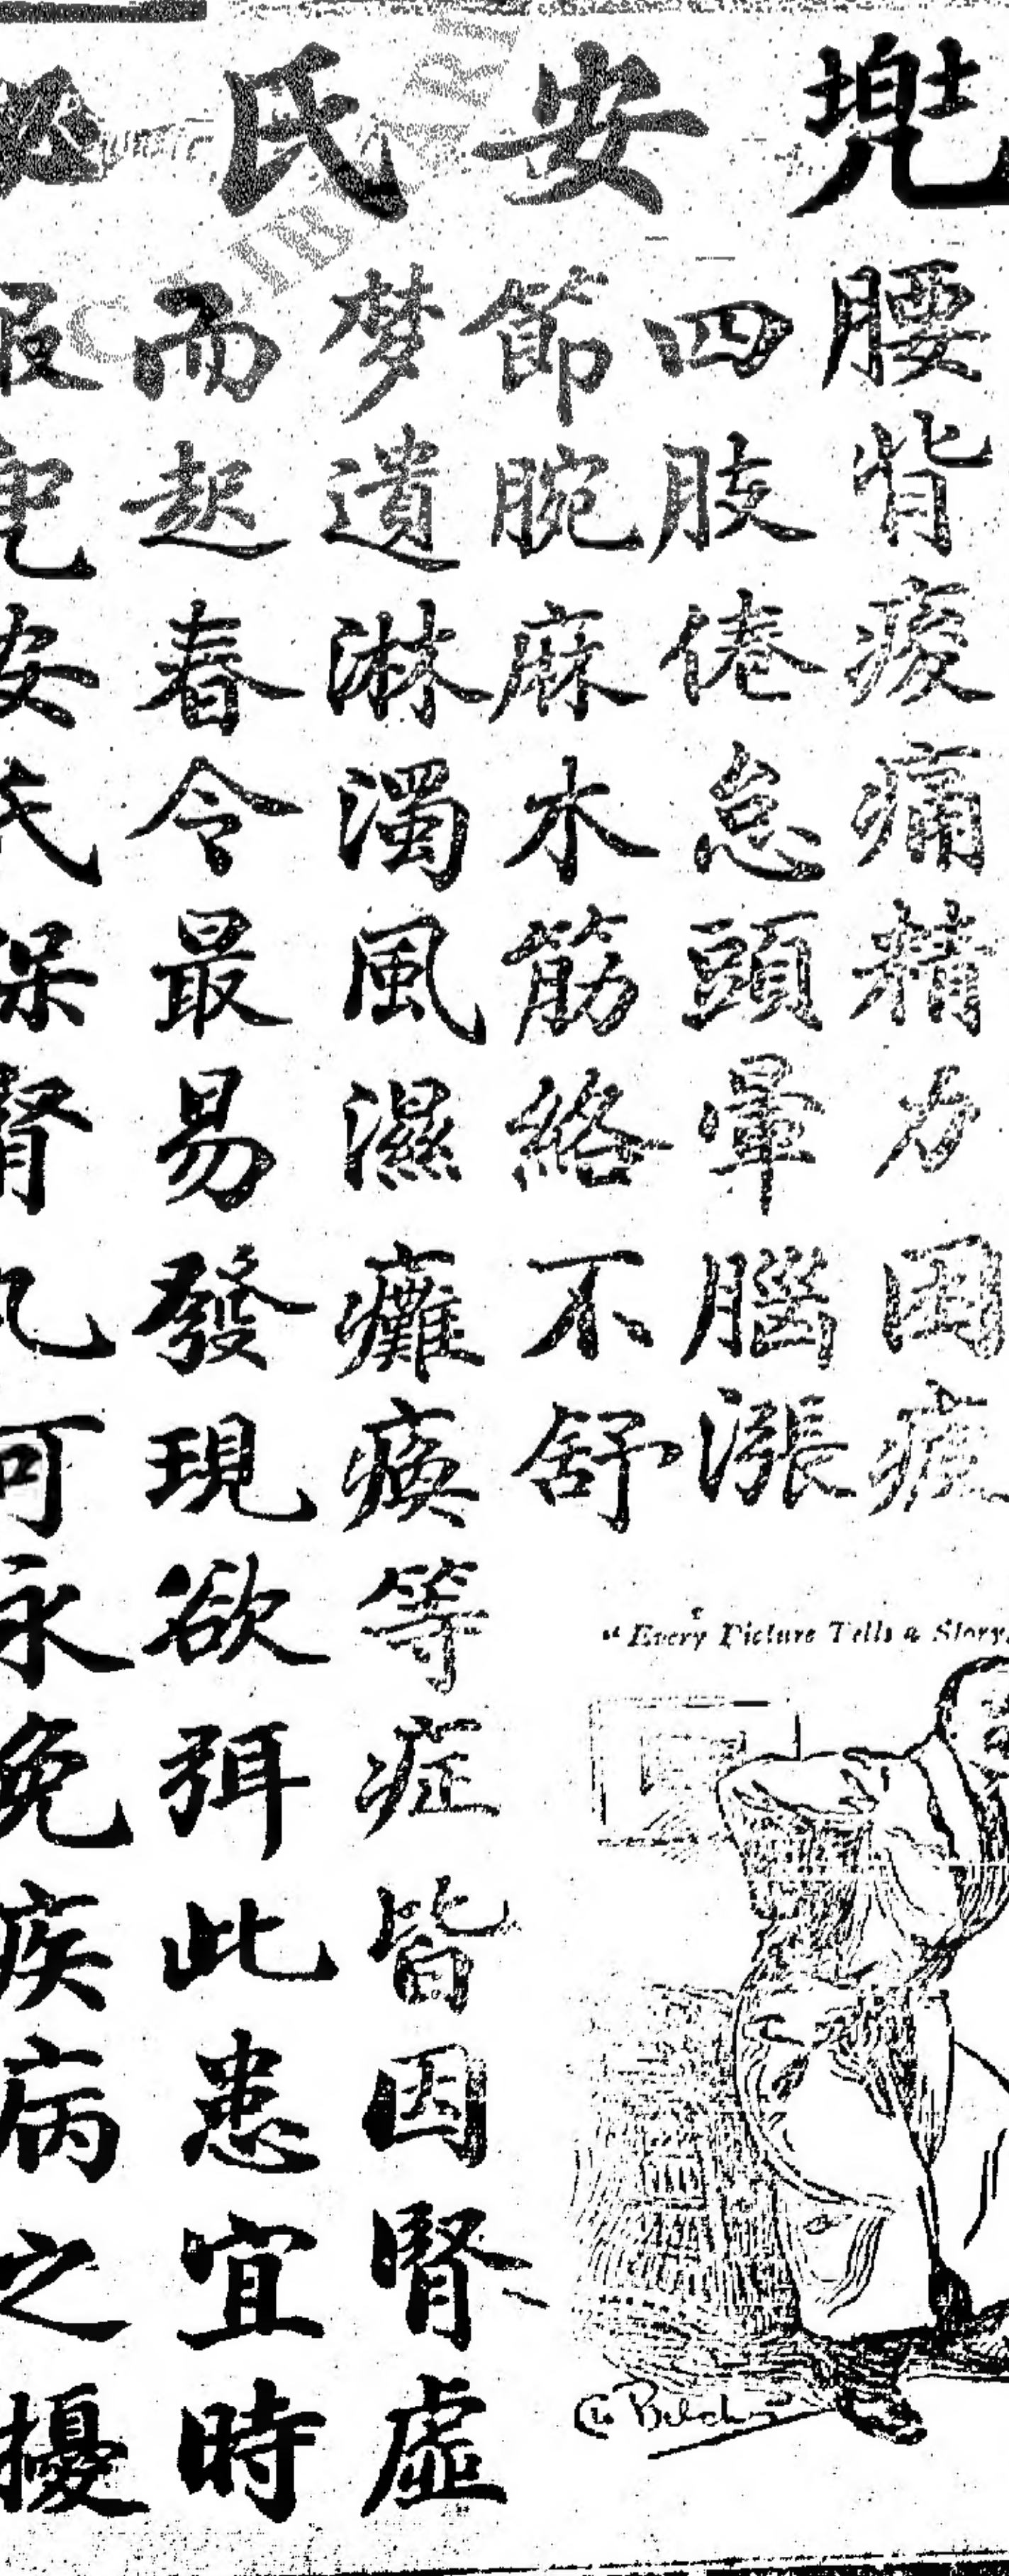 兜安氏
腰背痠痛精力困疲
四肢倦怠頭暈腦漲
節腕麻木筋絡不舒
梦遺淋濁風濕癱瘓等症皆因腎虛
而起春令最易發現欲弭此患宜時
服兜安氏保腎丸可永免疾病之擾
"Every Picture Tells a Story.